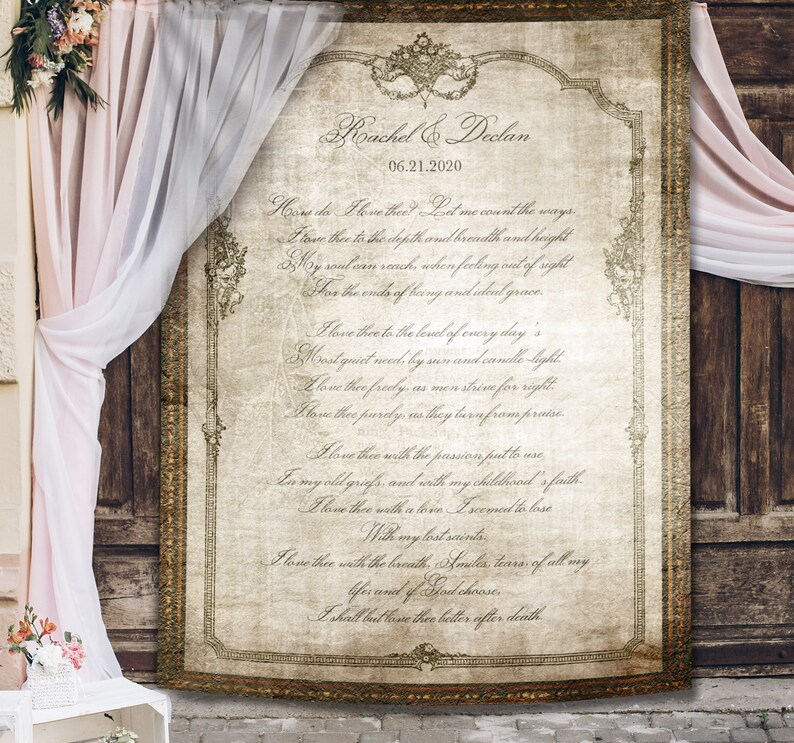 Rachel & Declan
06.21.2020
How do I love thee? Let me count the ways.
I love thee to the depth and breadth and height
My soul can reach, when feeling out of sight
For the ends of being and ideal grace.
I love thee to the level of every day's
Most quiet need, by sun and candle-light.
I love thee freely, as men strive for right.
I love thee purely, as they turn from praise.
I love thee with the passion put to use
In my old griefs, and with my childhood's faith.
I love thee with a love I seemed to lose
With my lost saints.
I love thee with the breath, Smiles, tears, of all my
life; and if God choose,
I shall but love thee better after death.